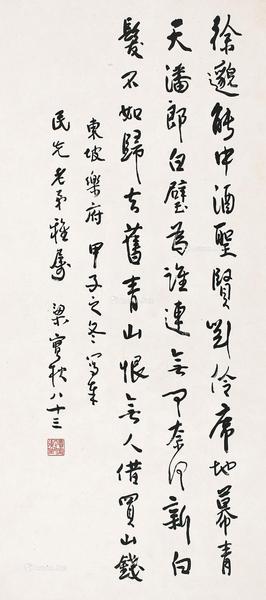 徐邈能中酒聖賢劉伶席地幕青
天潘郎白璧為誰連無可奈何新白
髮不如歸去舊青山恨無人借買山錢
東坡樂府 甲子之冬寫奉
民先老弟雅屬 梁實秋八十三